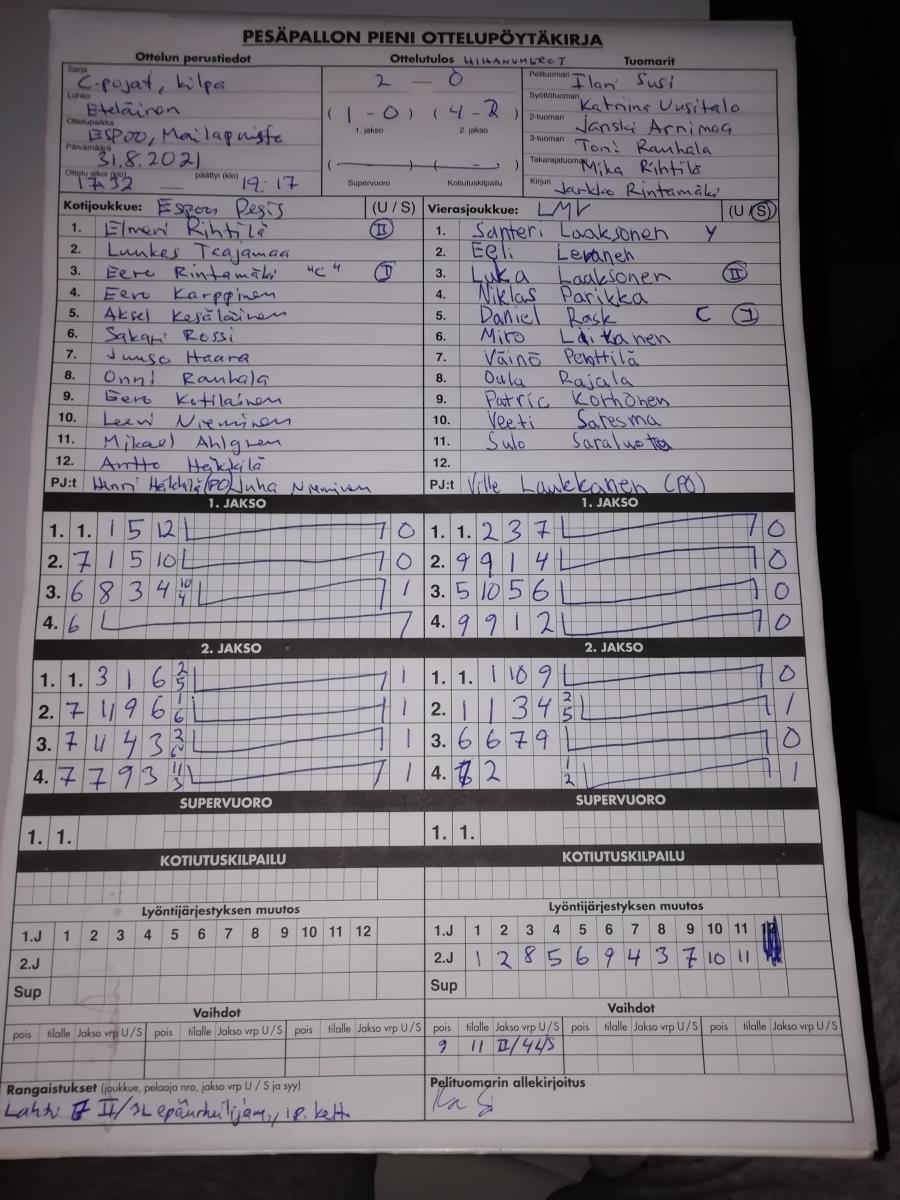 PESÄPALLON PIENI OTTELUPÖYTÄKIRJA
Ottelun perustiedot Ottelutulos HIHANUMEROT Tuomarit
Sarja C-pojat, kilpa 2 — 0 Pelituomari Ilari Susi
Lohko Eteläinen (1-0) (4-2) Syöttötuomari Katriina Uusitalo
Ottelupaikka ESPOO, Mailapuisto 1. jakso 2. jakso 2-tuomari Janski Arnimaa
Päivämäärä 31.8.2021 3-tuomari Toni Rauhala
Takarajatuomari Mika Rihtilä
Ottelu alkoi (klo) 17:32 — päättyi (klo) 19:17 Supervuoro Kotiutuskilpailu Kirjuri Jarkko Rintamäki
Kotijoukkue: Espoon Pesis (U / S) Vierasjoukkue: LMV (U / S)
1. Elmeri Rihtilä II 1. Santeri Laaksonen Y
2. Luukas Taajamaa 2. Eeli Levanen
3. Eero Rintamäki "C" I 3. Luka Laaksonen II
4. Eero Karppinen 4. Niklas Parikka
5. Aksel Kesäläinen 5. Daniel Rask C I
6. Sakari Rossi 6. Miro Laitanen
7. Juuso Haara 7. Väinö Penttilä
8. Onni Rauhala 8. Oula Rajala
9. Eero Kotilainen 9. Patric Korhonen
10. Leevi Nieminen 10. Veeti Saresma
11. Mikael Ahlgren 11. Sulo
12. Arttu Heikkilä 12.
PJ:t Henri Heikkilä (PO) Juha Nieminen PJ:t Ville Laukkanen (PO)
1. JAKSO 1. JAKSO
1. 1. 1 5 12 0 1. 1. 2 3 7 0
2. 7 1 5 10 0 2. 9 9 1 4 0
3. 6 8 3 4 10 4 1 3. 5 10 5 6 0
4. 6 4. 9 9 1 2 0
2. JAKSO 2. JAKSO
1. 1. 3 1 6 2 5 1 1. 1. 1 10 9 0
2. 7 11 9 6 1 6 1 2. 1 1 3 4 2 5 1
3. 7 11 4 3 2 6 1 3. 6 6 7 9 0
4. 7 7 9 3 11 3 1 4. 2 1 2 1
SUPERVUORO SUPERVUORO
1. 1. 1. 1.
KOTIUTUSKILPAILU KOTIUTUSKILPAILU
Lyöntijärjestyksen muutos Lyöntijärjestyksen muutos
1.J 1 2 3 4 5 6 7 8 9 10 11 12 1.J 1 2 3 4 5 6 7 8 9 10 11
2.J 2.J 1 2 8 5 6 9 4 3 7 10 11
Sup Sup
Vaihdot Vaihdot
pois tilalle Jakso vrp U / S pois tilalle Jakso vrp U / S pois tilalle Jakso vrp U / S pois tilalle Jakso vrp U / S pois tilalle Jakso vrp U / S pois tilalle Jakso vrp U / S
9 11 II/4L/S
Rangaistukset (joukkue, pelaaja nro, jakso vrp U / S ja syy) Pelituomarin allekirjoitus
Lahti 7 II/ epäurheilijam,